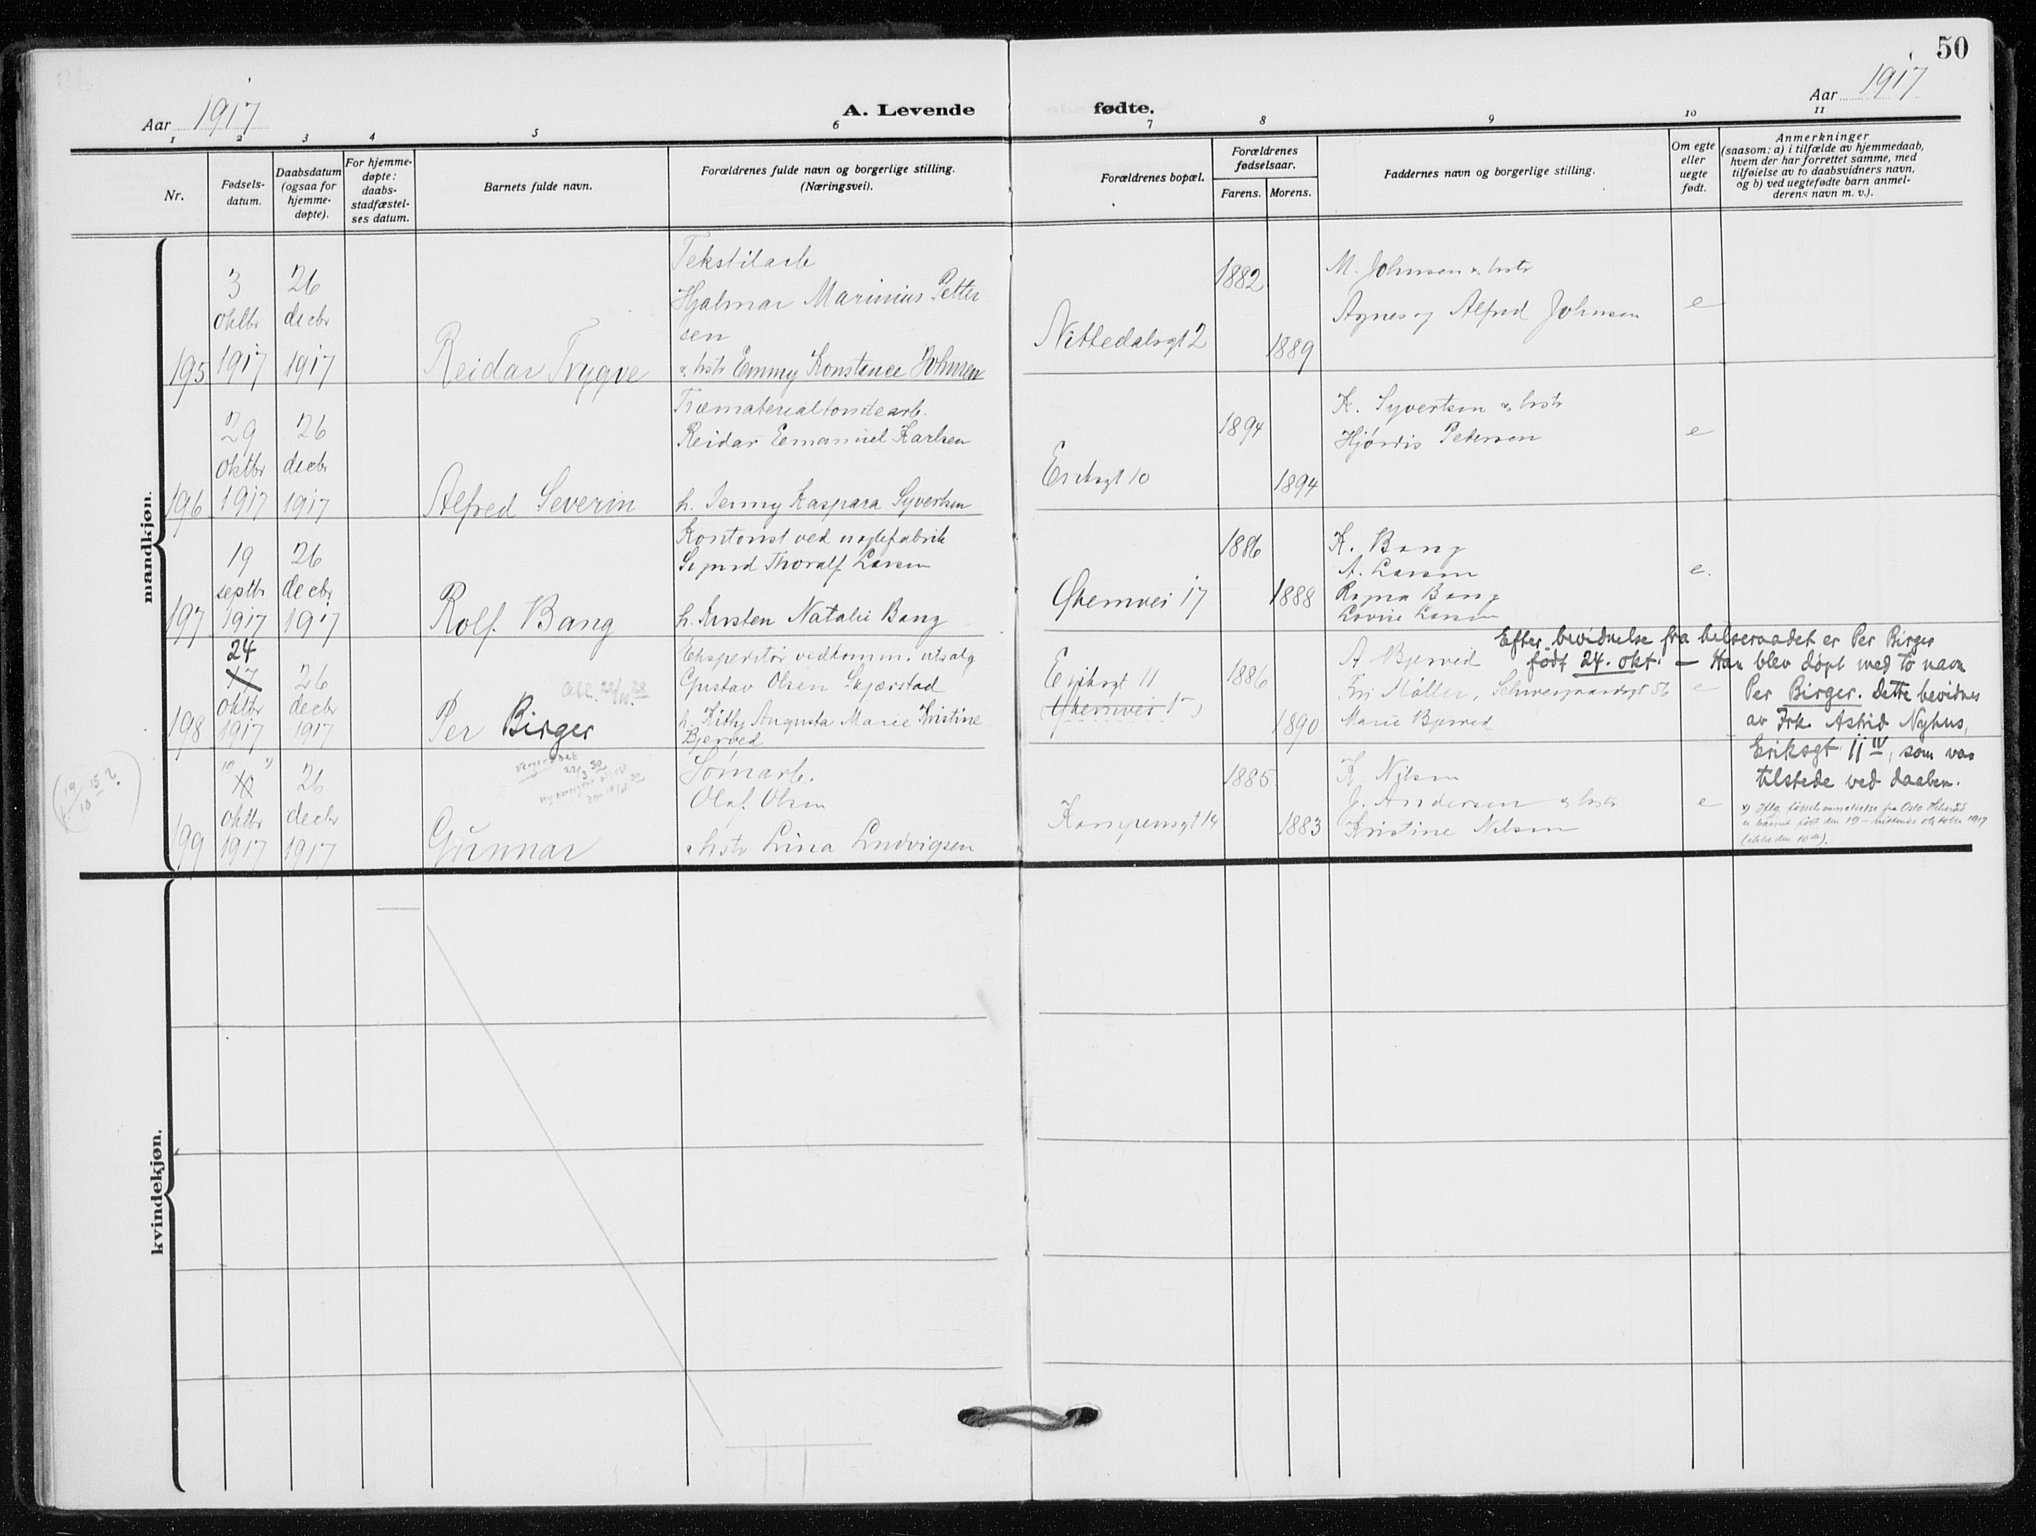 50
Aar 1917
A. Levende fødte.
Aar 1917
1 2 3 4 5 6 7 8 9 10 11
Nr.
Fødsels-
datum.
Daabsdatum
(ogsaa for
hjemme-
døpte).
For hjemme-
døpte:
daabs-
stadfæstel-
ses datum.
Barnets fulde navn.
Forældrenes fulde navn og borgerlige stilling.
(Næringsvei).
Forældrenes bopæl.
Forældrenes
fødselsaar.
Farens. Morens.
Faddernes navn og borgerlige stilling.
Om egte
eller
uegte
født.
Anmerkninger
(saasom: a) i tilfælde av hjemmedaab,
hvem der har forrettet samme, med
tilføielse av to daabsvidners navn,
og b) ved uegtefødte barn anmel-
derens navn m. v.).
mandkjøn.
195
3
oktbr
1917
26
decbr
1917
Reidar Trygve
Tekstilarb
Hjalmar Marinius Petter
sen
& hstr Emmy Konstance Johnsen
Nittedalsgt 2
1882
1889
M. Johnsen & hstr
Agnes og Alfred Johnsen
e
196
29
oktbr
1917
26
decbr
1917
Alfred Severin
Træmaterialtomtearb.
Reidar Eemanuel Karlsen
h. Jenny Kaspara Syvertsen
Eriksgt 10
1894
1894
K. Syvertsen & hstr
Hjørdis Petersen
e
197
19
septbr
1917
26
decbr
1917
Rolf Bang
Kontorist ved naglefabrik
Sigurd Thoralf Larsen
h. Kirsten Natalie Bang
Økernvei 17
1886
1888
K. Bang
A. Larsen
Ragna Bang
Lovise Larsen
e.
198
24
17
oktbr
1917
26
decbr
1917
Per Birger
Ekspeditør ved komm. utsalg
Gustav Olsen Skjærstad
h. Kitty Augusta Marie Kristine
Bjerved
Eriksgt 11
(Økernvei 15)
1886
1890
A Bjerved
Frk Møller, Schweigaardsgt 56
Marie Bjerved
e
Efter bevidnelse fra helseraadet er Per Birger
født 24. okt. — Han blev døpt med to navn
Per Birger. Dette bevidnes
av Frk. Astrid Nyhus,
Eriksgt 11 IV, som var
tilstede ved daaben.
199
19 x)
10
oktbr
1917
26
decbr
1917
Gunnar
Sømarb.
Olaf Olsen
& hstr Lina Ludvigsen
Kampensgt 14
1885
1883
K. Nilsen
J. Andersen & hstr
Kristine Nilsen
e
x) Iflg. fødselsmeldelse fra Oslo Helseråd
er barnet født den 19 – nittende oktober 1917
(ikke den 10de).
kvindekjøn.